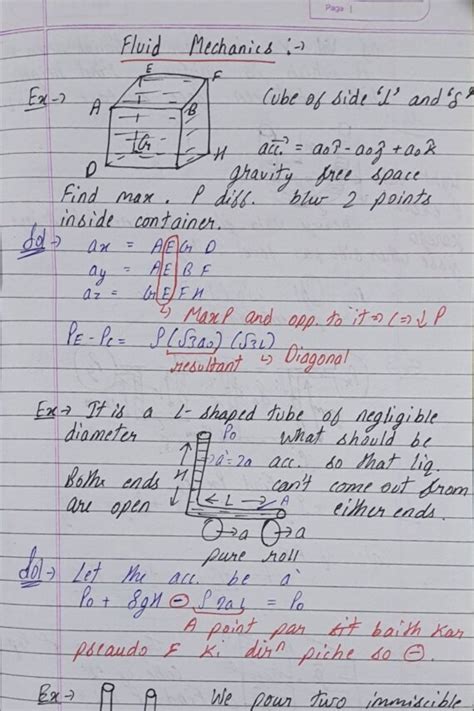 Page
Fluid Mechanics :→
Ex→
E
F
A
B
G
D
H
Cube of side 'L' and 'ρ'
acc. = a₀x̂ - a₀ŷ + a₀ẑ
gravity free space
Find max. P diff. b/w 2 points
inside container.
Sol→ ax = AEGD
ay = AEBF
az = GEFH
↳ Max P and opp. to it ⇒ C ⇒ ↓ P
PE - PC = ρ(√3a₀)(√3L)
resultant ↳ Diagonal
Ex→ It is a L-shaped tube of negligible
diameter
P₀
What should be
→ a' = 2a
acc. so that liq.
H
Bothe ends
can't come out from
← L → A
are open
either ends.
→a →a
pure roll
Sol→ Let the acc. be a
P₀ + ρgH ⊖ ρ2aL = P₀
A point par baith kar
pseaudo F ki dirⁿ piche so ⊖.
Ex→
We pour two immiscible